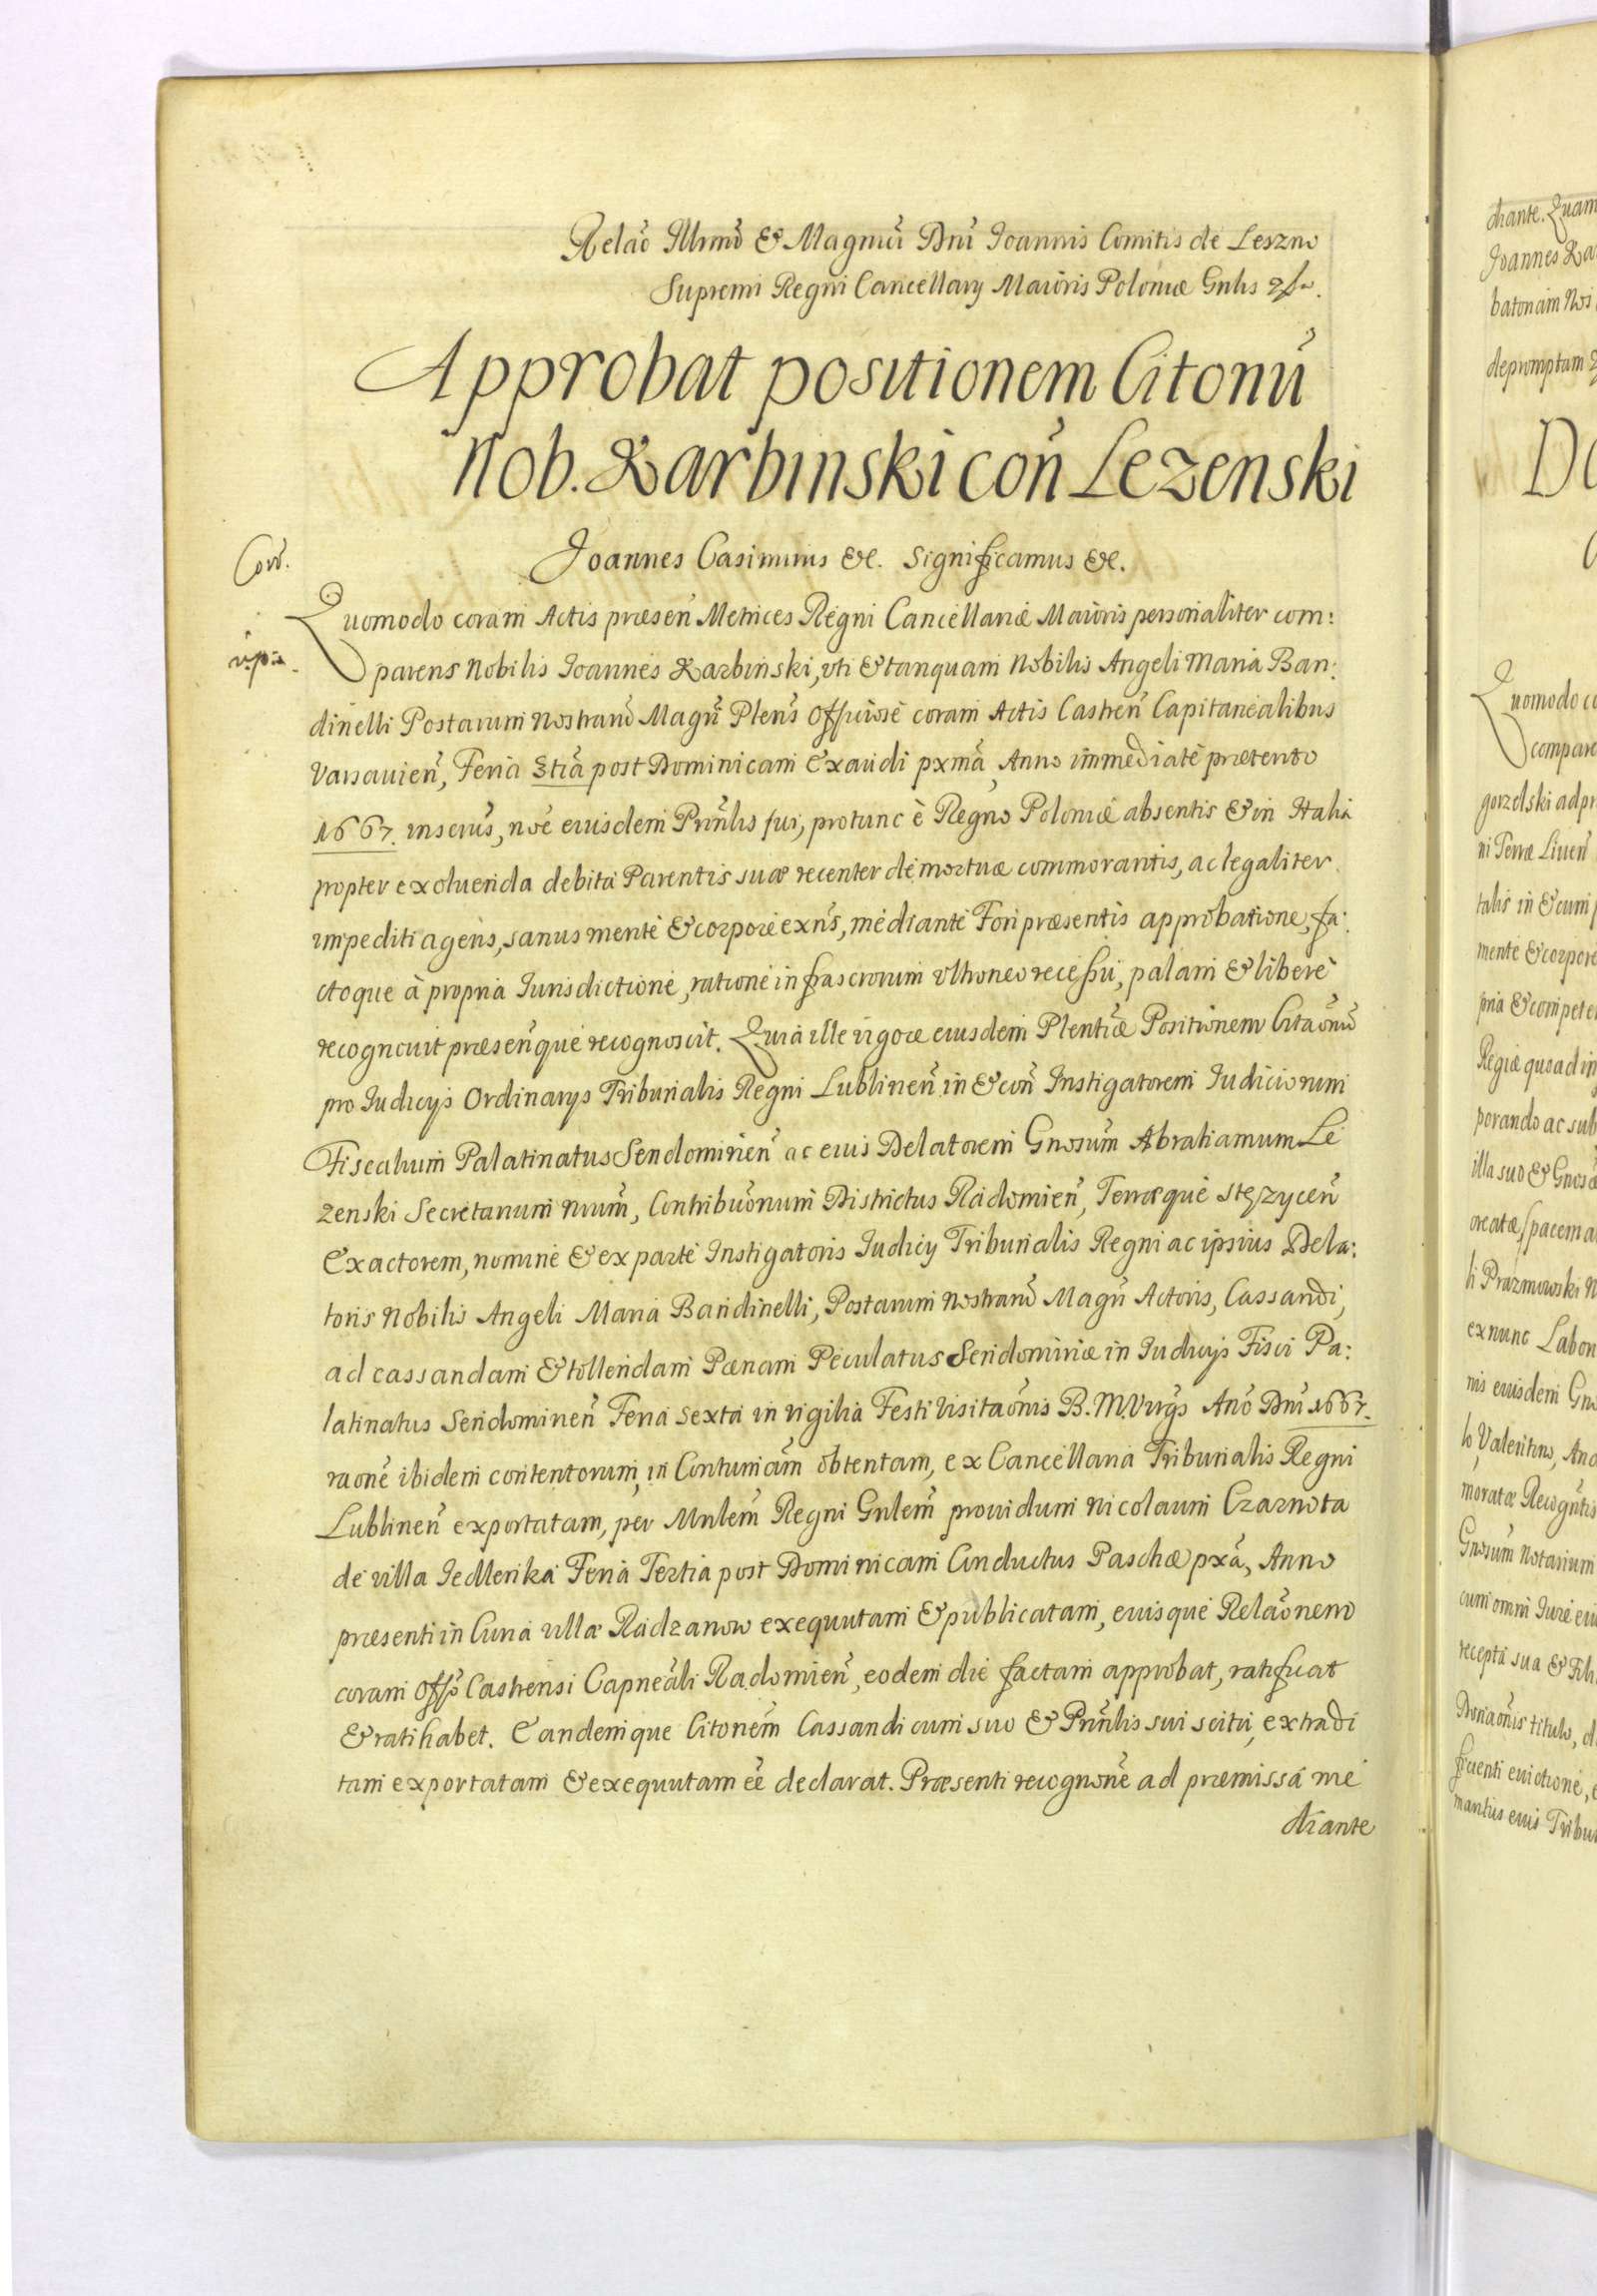 Relaõ Illrmõ & Magnici Dnĩ Joannis Comitis de Leszno
Supremi Regni Cancellarij Maioris Poloniæ Gnlis
Approbat positionem Citonũ
Nob. Karbinski coñ Lezenski
Joannes Casimirus &c. Significamus &c.
Corõ.
Quomodo coram Actis præseñ Metrices Regni Cancellariæ Maioris personaliter com:
parens Nobilis Joannes Karbinski, vti & tanquam Nobilis Angeli Maria Ban:
dinelli Postarum Nostrarũ Magrĩ Pleñs Officiose coram Actis Castreñ Capitanealibus
Varsavieñ, Feria 3tiã post Dominicam Exaudi pxmã, Anno immediatè præterito
1667. inscrĩus, nõe eiusdem Prñlis sui, protunc è Regno Poloniæ absentis & in Italia
propter exoluenda debita Parentis suæ recenter demortuæ commorantis, ac legaliter
impediti agens, sanus mente & corpore exñs, mediante Fori præsentis approbatione, fa:
ctoque à propria Jurisdictione, ratione infrascrorum vltroneo recessu, palam & liberè
recognovit præseñque recognoscit. Quia ille vigore eiusdem Plentiæ Positionem Citaõnũ
pro Judicijs Ordinarijs Tribunalis Regni Lublineñ in & coñ Instigatorem Judiciorum
Fiscalium Palatinatus Sendomirieñ ac eius Delatorem Gnosum Abrahamum Le
zenski Secretarium Nrũm, Contribuõnum Districtus Radomieñ, Terræque Stęzyceñ
Exactorem, nomine & ex parte Instigatoris Judicij Tribunalis Regni ac ipsius Dela:
toris Nobilis Angeli Maria Bandinelli, Postarum Nostrarũ Magrĩ Actoris, Cassandi,
ad cassandam & tollendam Pœnam Peculatus Sendomiriæ in Judicijs Fisci Pa:
latinatus Sendomirieñ Feria Sexta in vigilia Festi Visitaõnis B. M. Virgs Anõ Dnĩ 1667.
raonẽ ibidem contentorum, in Contumãm obtentam, ex Cancellaria Tribunalis Regni
Lublineñ exportatam, per Mnlem Regni Gnlem providum Nicolaum Czarnota
de villa Jedlenka Feria Tertia post Dominicam Conductus Paschæ pxã, Anno
præsenti in Curia villæ Radzanow exequutam & publicatam, eiusque Relaõnem
coram Offõ Castrensi Capneãli Radomieñ, eodem die factam approbat, ratificat
& ratihabet. Eandemque Citonẽm Cassandi cum suo & Prñlis sui scitu, extradi
tam exportatam & exequutam eẽ declarat. Præsenti recognonẽ ad præmissa me
diante
diante. Quam
Joannes Kar
depromptam
Quomodo co
compare
gorzelski ad pr
ni Terræ Liueñ
talis in & cum
mente & corpore
pria & compete
Regiæ quo ad in
porando ac sub
illa suo & Gnosæ
li Prazmowski N
ex nunc Labor
nis eiusdem Gno
moratæ Recogntis
Gnosum Notarium
cum omni Jure
recepta sua & Fili
Donaõnis titulo, d
fruenti evictione,